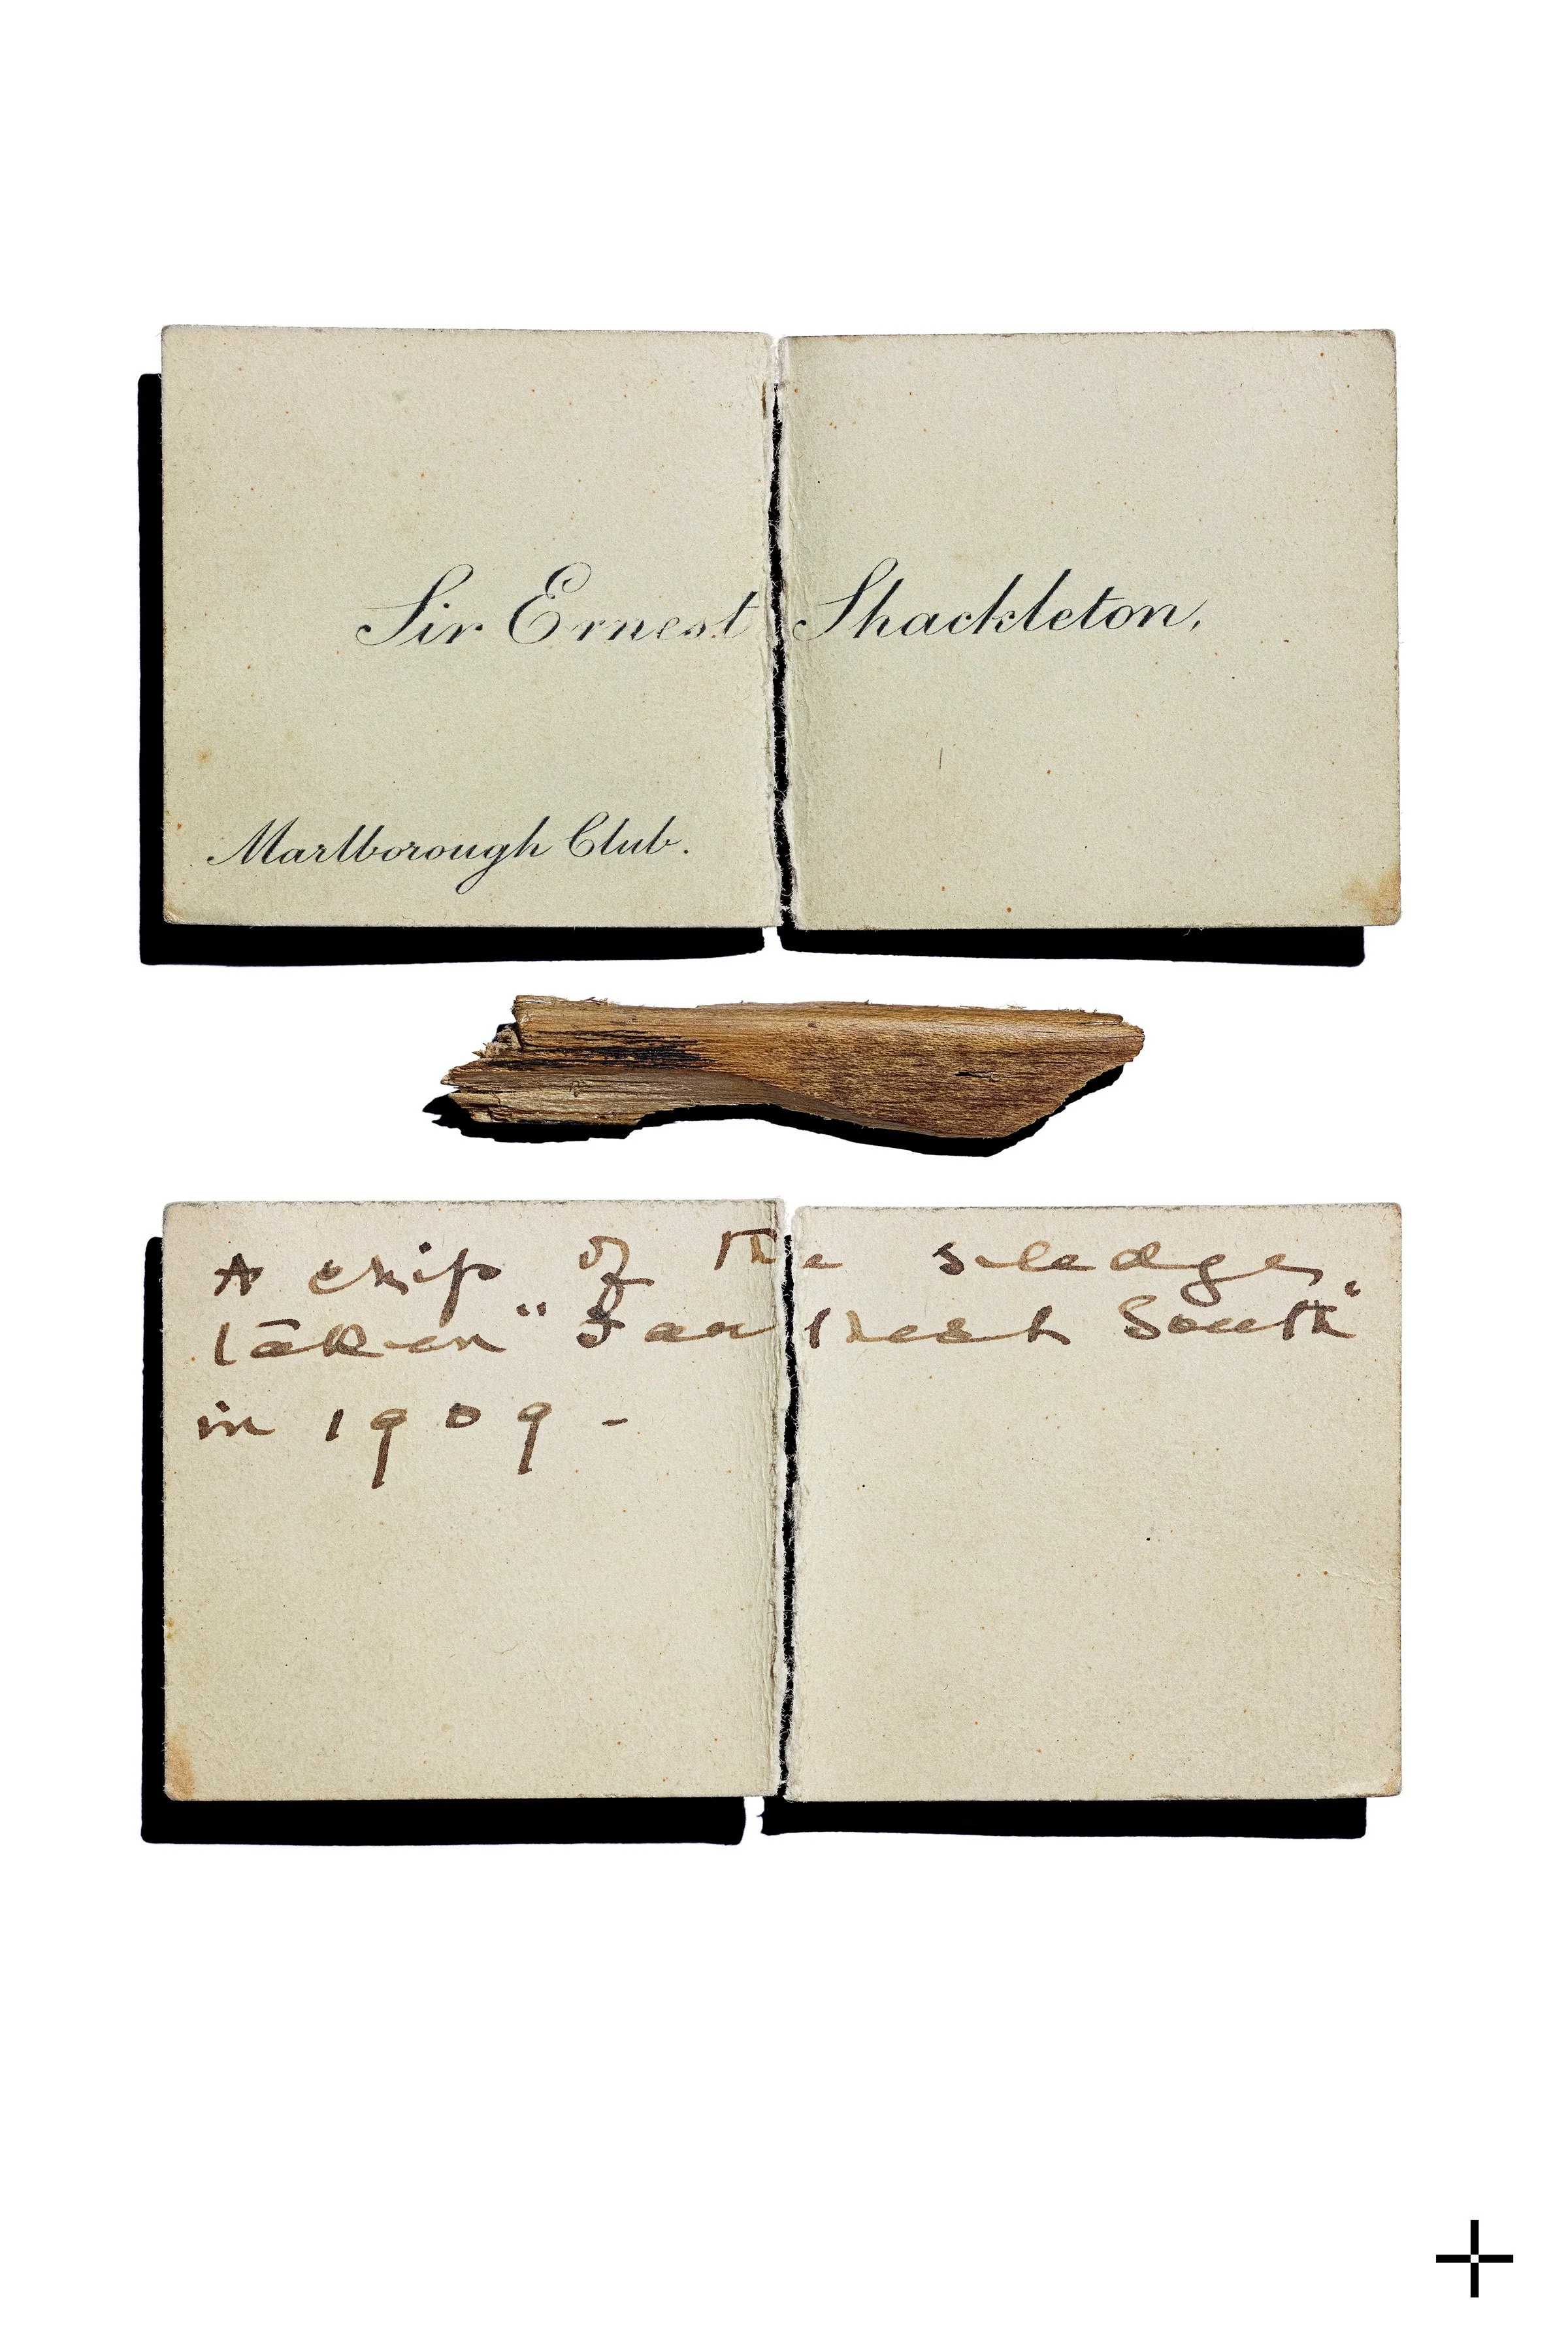 Sir Ernest Shackleton,
Marlborough Club.
A chip of the sledge
taken "Farthest South"
in 1909 -